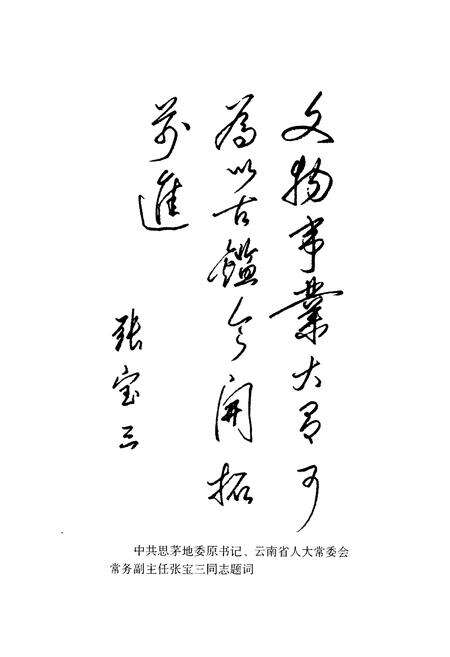 文物事業大有可
為以古鑑今開拓
前進
张宝三
中共思茅地委原书记、云南省人大常委会
常务副主任张宝三同志题词